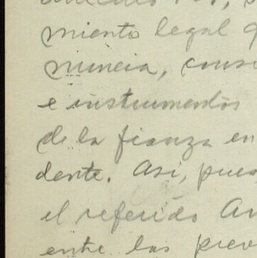 miento legal
nuncia,
e instrumentos
de la fianza en
dente. Así, pues
el referido Ar
entre las prev